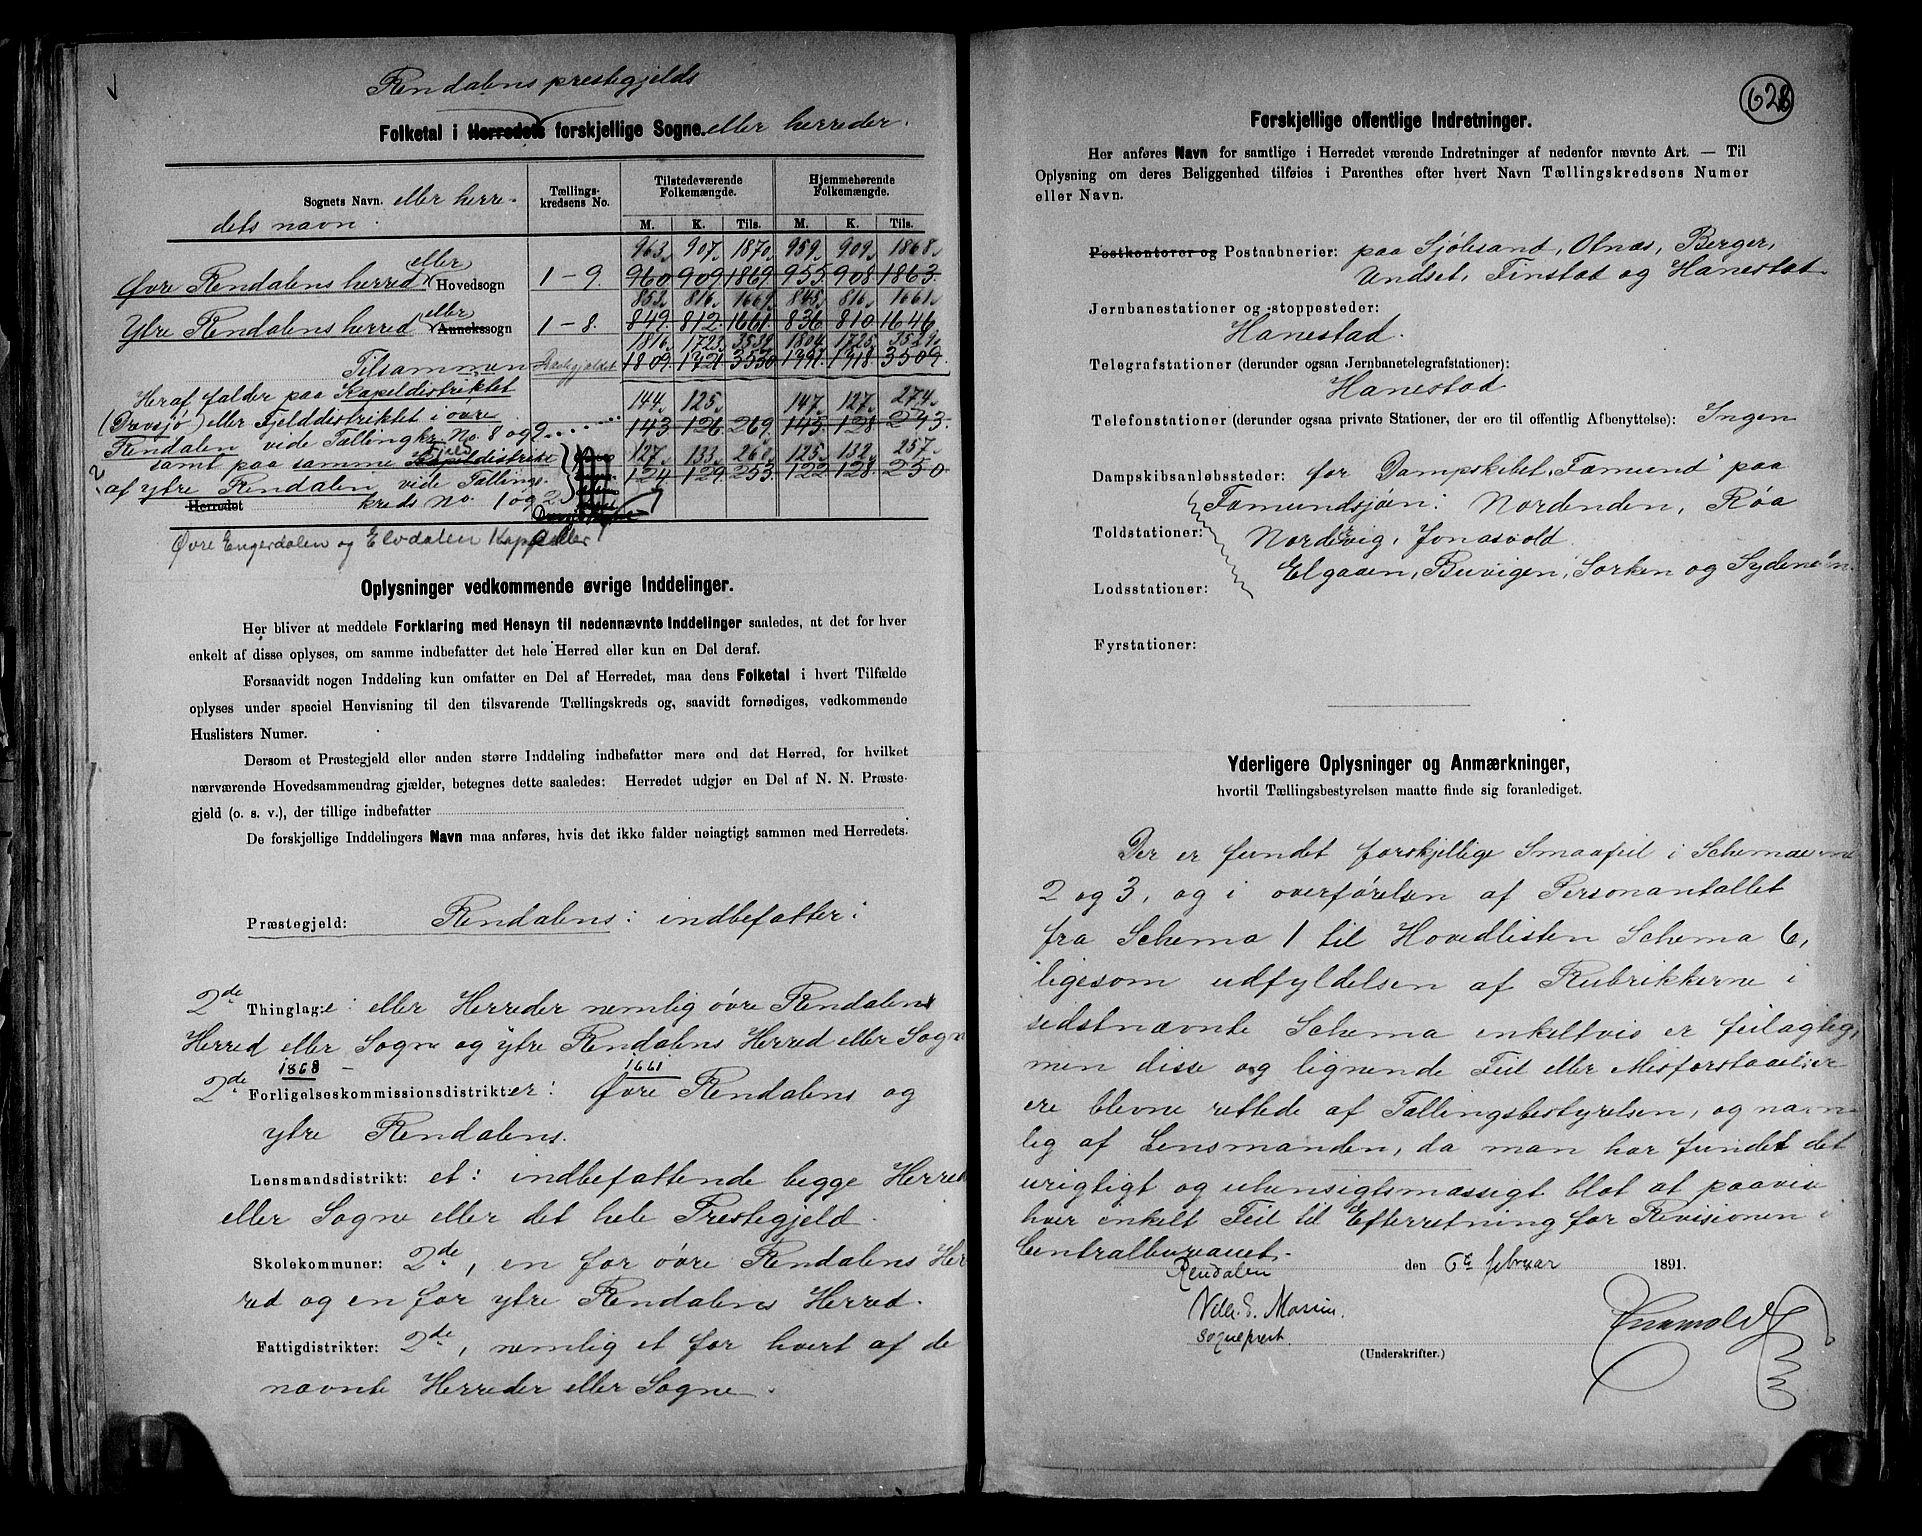 Rendalens prestegjelds
Folketal i Herredets forskjellige Sogne. eller herreder.
Sognets Navn. eller herre-
dets navn.
Tællings-
kredsens No.
Tilstedeværende
Folkemængde.
Hjemmehørende
Folkemængde.
M. K. Tils. M. K. Tils.
963. 907. 1870. 959. 909. 1868.
Øvre Rendalens herred eller Hovedsogn 1-9. 960 909 1869 955 908 1863.
853. 816. 1669. 845. 816. 1661.
Ytre Rendalens herred eller Annekssogn 1-8. 849. 812. 1661 836 810. 1646.
1816. 1723. 3539. 1804. 1725. 3529.
Tilsammen 1809. 1721 3530 1791. 1718 3509.
Heraf falder paa Kapeldistriktet 144. 125. 147. 127. 274.
(Drevsjø) eller Fjelddistriktet i øvre 143 126 269. 145 128 273.
Rendalen vide Tællingskr. No. 8 og 9.
samt paa samme Fjeld Kapeldistrikt 127. 133. 125. 132. 257.
af ytre Rendalen vide Tællings- 124. 129. 253. 122. 128. 250.
Herredet kreds No. 1 og 2.
Øvre Engerdalen og Elvdalen Kapeller
Oplysninger vedkommende øvrige Inddelinger.
Her bliver at meddele Forklaring med Hensyn til nedennævnte Inddelinger saaledes, at det for hver
enkelt af disse oplyses, om samme indbefatter det hele Herred eller kun en Del deraf.
Forsaavidt nogen Inddeling kun omfatter en Del af Herredet, maa dens Folketal i hvert Tilfælde
oplyses under speciel Henvisning til den tilsvarende Tællingskreds og, saavidt fornødiges, vedkommende
Huslisters Numer.
Dersom et Præstegjeld eller anden større Inddeling indbefatter mere end det Herred, for hvilket
nærværende Hovedsammendrag gjælder, betegnes dette saaledes: Herredet udgjør en Del af N. N. Præste-
gjeld (o. s. v.), der tillige indbefatter
De forskjellige Inddelingers Navn maa anføres, hvis det ikke falder nøiagtigt sammen med Herredets.
Præstegjeld: Rendalens: indbefatter:
2de Thinglage: eller Herreder nemlig øvre Rendalens
Herred eller Sogne og ytre Rendalens Herred eller Sogn
1868 1661
2de Forligelseskommissionsdistrikter: Øvre Rendalens og
ytre Rendalens.
Lensmandsdistrikt: et: indbefattende begge Herred
eller Sogne eller det hele Prestegjeld.
Skolekommuner: 2de, en for øvre Rendalens Her
red og en for ytre Rendalens Herred.
Fattigdistrikter: 2de, nemlig et for hvert af de
navnte Herreder eller Sogne.
628
Forskjellige offentlige Indretninger.
Her anføres Navn for samtlige i Herredet værende Indretninger af nedenfor nævnte Art. — Til
Oplysning om deres Beliggenhed tilføies i Parenthes efter hvert Navn Tællingskredsens Numer
eller Navn.
Postkontorer og Postaabnerier: paa Sjølisand, Otnes, Berger,
Undset, Finstad og Hanestad
Jernbanestationer og -stoppesteder:
Hanestad.
Telegrafstationer (derunder ogsaa Jernbanetelegrafstationer):
Hanestad
Telefonstationer (derunder ogsaa private Stationer, der ere til offentlig Afbenyttelse): Ingen
Dampskibsanløbssteder: for Dampskibet "Famund" paa
Famundsjøen: Nordenden, Røa
Toldstationer: Nordervig, Jonasvold
Elgaaen, Buvigen, Sorken og Sydenden
Lodsstationer:
Fyrstationer:
Yderligere Oplysninger og Anmærkninger,
hvortil Tællingsbestyrelsen maatte finde sig foranlediget.
Der er fundet forskjellige Smaafeil i Schemaerne
2 og 3, og i overførelsen af Personantallet
fra Schema 1 til Hovedlisten Schema 6,
ligesom udfyldelsen af Rubrikkerne i
sidstnævnte Schema enkeltvis er feilagtig,
men disse og lignende Feil eller Misforstaaelser
ere blevne rettede af Tællingsbestyrelsen, og navne
lig af Lensmanden, da man har fundet det
urigtigt og uhensigtsmæssigt blot at paavise
hver enkelt Feil til Efterretning for Revisionen i
Centralbureauet.
Rendalen den 6te februar 1891.
sogneprest.
(Underskrifter.)